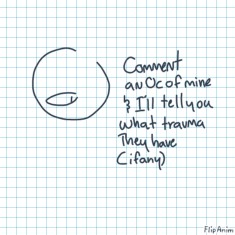 Comment
an Oc of mine
& I'll tell you
what trauma
They have
(if any)
FlipAnim